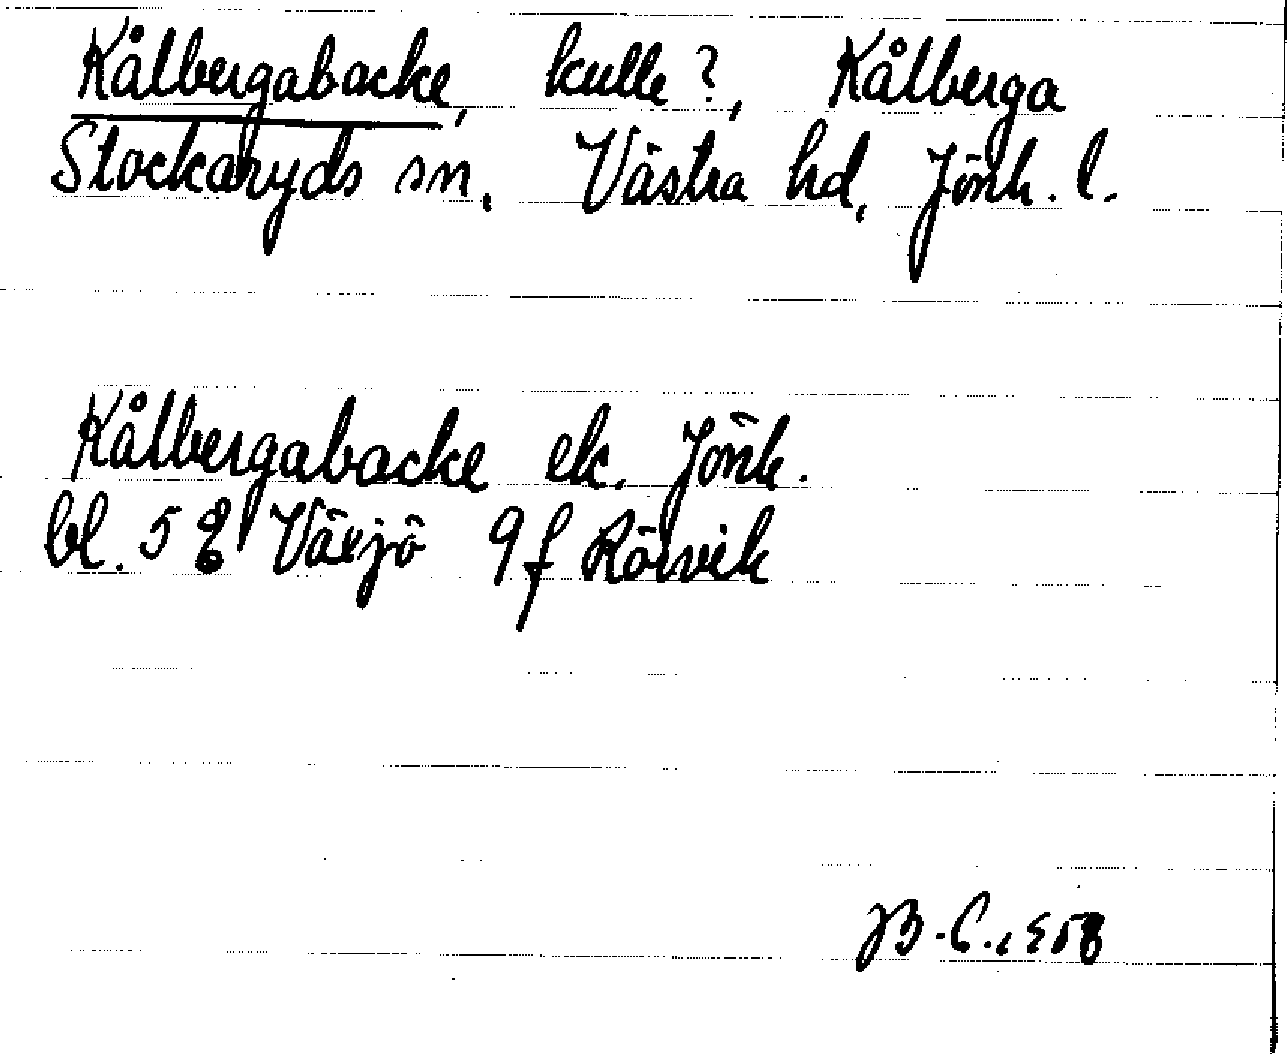 Kålbergabacke, kulle?, Kålberga
Stockaryds sn, Västra hd, Jönk. l.
Kålbergabacke ek. Jönk.
bl. 5 E Växjö 9f Rörvik